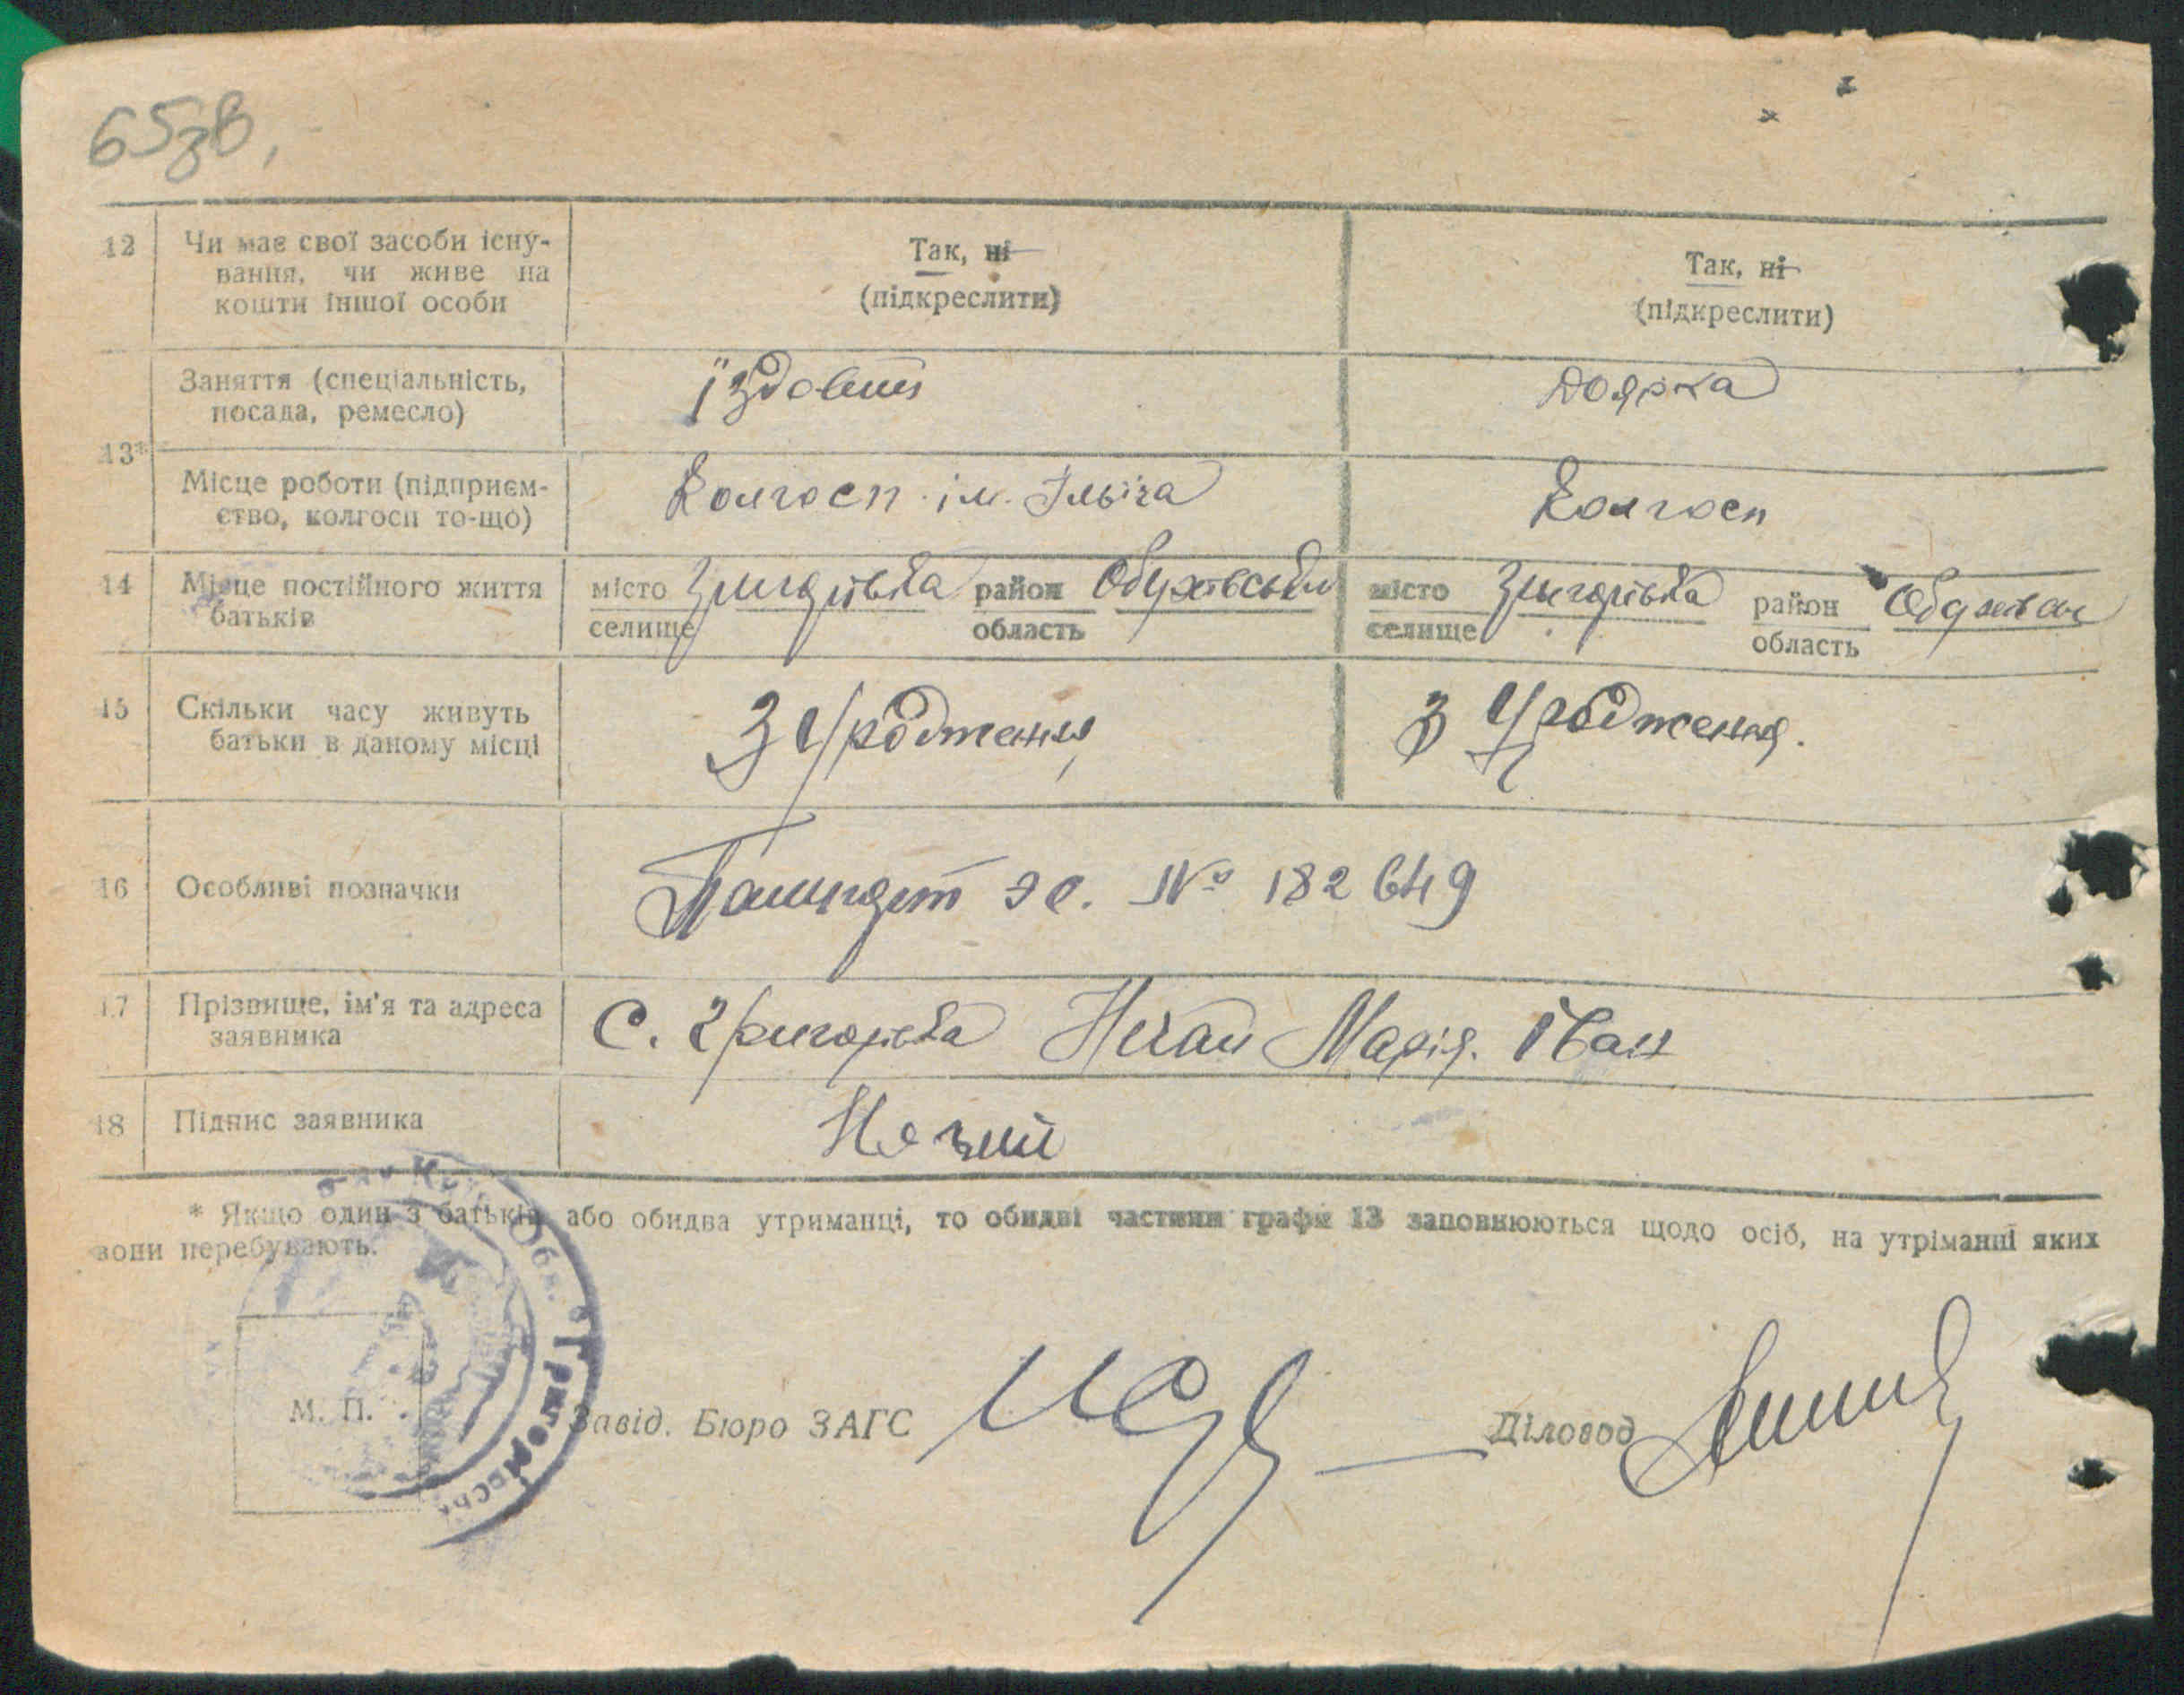 65зв,
12 Чи має свої засоби існу- Так, ні Так, ні
вання, чи живе на (підкреслити) (підкреслити)
кошти іншої особи
Заняття (спеціальність, їздовий доярка
посада, ремесло)
13*
Місце роботи (підприєм- Колгосп ім. Ілліча Колгосп
ство, колгосп то-що)
14 Місце постійного життя місто Григорівка район Обухівський місто Григорівка район
батьків селище область селище область
15 Скільки часу живуть З уродження З уродження.
батьки в даному місці
16 Особливі позначки № 182649
17 Прізвище, ім'я та адреса С. Григорівка Нечай Марія. Іван
заявника
18 Підпис заявника Нечай
* Якщо один з батьків або обидва утриманці, то обидві частини графи 13 заповнюються щодо осіб, на утріманні яких
вони перебувають.
Обл.
Григорівськ
М. П. Завід. Бюро ЗАГС Діловод